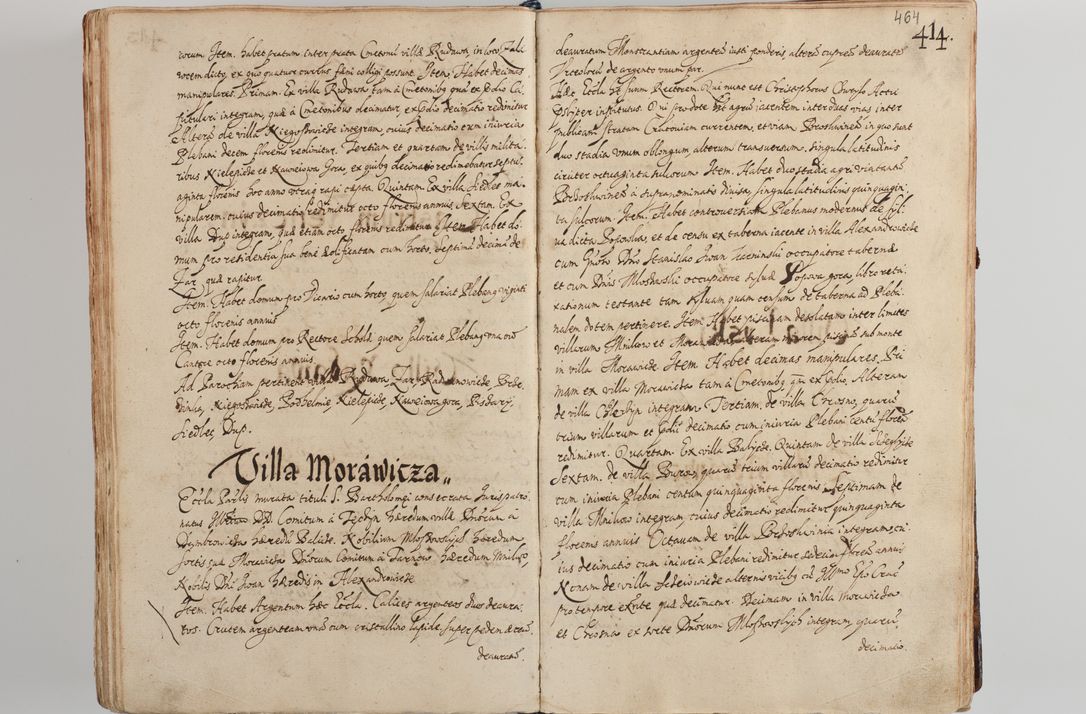 corum. Item. habet pratum inter prata Cmetonū villæ Ruduwa, in loco
vocem dicty, ex quo quatuor currus fæni colligi possunt. Item. Habet decimas
manipulares. Primam. Ex villa Ruduwa tam à Cmetonibȝ quā ex prædio Ca
pitulari integram, quæ à Cmetonibus decimatur, ex prædio decimatio redimitur
Alterā de villa integram, cuius decimatio cum iniuria
Plebani decem florenis redimitur. Tertiam et quartam de villis milita
ribus Kielepicze et Kaweiowa Gora, ex quibȝ decimatio redimebatur septu
aginta florenis hoc anno utraqȝ rapi cæpta. Quintam. Ex villa Siedlec ma
nipularem, cuius decimatio redimitur octo florenis annuis. Sextam. Ex
villa Dup integram, quæ etiam octo florenis redimitur. Item. Habet do
mum pro residentia sua benè ædificatam cum horto. Septimā decimā de
Zar quæ rapitur.
Item. Habet domum pro Vicario cum horto, quem salariat Plebanȝ viginti
octo florenis annuis
Item. Habet domum pro Rectore Scholæ, quem salariat Plebanȝ una cū
Cantore octo florenis annuis.
Ad Parochiam pertinent villæ Ruduwa, Zary, Radwanowicze, Brze
zinka, Podbelnie, Kielepicze, Kaweiowagora, Pisáry,
Siedlec, Dup.
Villa Moráwicza,,
Eccla Parlis murata tituli S. Bartholomęi consecrata, Iuris patro
natus DD. Comitum à Teczyn hæredum villæ Dnorum à
Dymbrowicka hæredū Balicze. Nobilium hæredum
sortis suæ Morawicza Dnorum Comitum à Tarnow hæredum Mnikow,
Nobilis Dni Joan hæredis in Alexandrowicze
Item. Habet Argentum hæc Eccla. Calices argenteos duos deaura
tos. Crucem argenteam unā cum cristallino lapide, super pedem
deauratū.
464
414.
deauratum. Monstrantiam argenteā iusti ponderis, alterā cupreā deauratā
Vrceolorū de argento unum par.
Hæc Eccla hēt suum Rectorem. Qui nunc est Christophorus
Prsbiter institutus. Qui pro dote hēt agrū iacentem inter duas vias inter
publicam stratam Cracouiam currentem, et viam in quo sunt
duo stadia unum oblongum, alterum transuersum, singula latitudinis
circiter octuaginta sulcorum. Item. Habet duo stadia agri
à supranominatis diuisa, singula latitudinis quinquagin
ta sulcorum. Item. Habet controuersiam Plebanus modernus de syl
ua dicta Poposka, et de censu ex taberna iacente in villa Alexandrowicze
cum Gñoso Dño Stanislao Joan occupatore tabernæ
et cum Dnis occupatore syluæ Popowa gora, libro reta
xationum testante tam syluam quam censum de taberna ad Pleba
nalem dotem pertinere. Item. Habet piscinam desolatam inter limites
villarum Mnikow et Morawicza, alteram minorem piscinā sub monte
in villa Morawicze Item Habet decimas manipulares. Pri
mam ex villa Morawicza tam à Cmetonibȝ quā ex prædio. Alteram
de villa integram. Tertiam. de villa Chrosno, quarū
trium villarum et prædiū decimatio cum iniuria Plebani centū florenis
redimitur. Quartam. Ex villa Balicze. Quintam de villa
Sextam. de villa Burow quarū trium villarū decimatio redimitur
cum iniuria Plebani centum quinquaginta florenis. Septimam de
villa Mnikow integram, cuius decimatio redimitur quinquaginta
florenis annuis. Octauam de villa integram, cu
ius decimatio cum iniuria Plebani redimitur sedecim florenis annuis
Nonam de villa alternis vicibȝ cū Illmo Epo Crac
pro tempore exnte quæ decimatur. Decimam in villa Morawicza
et Chrosna ex sorte Dnorum integram, quarū
decimatio.